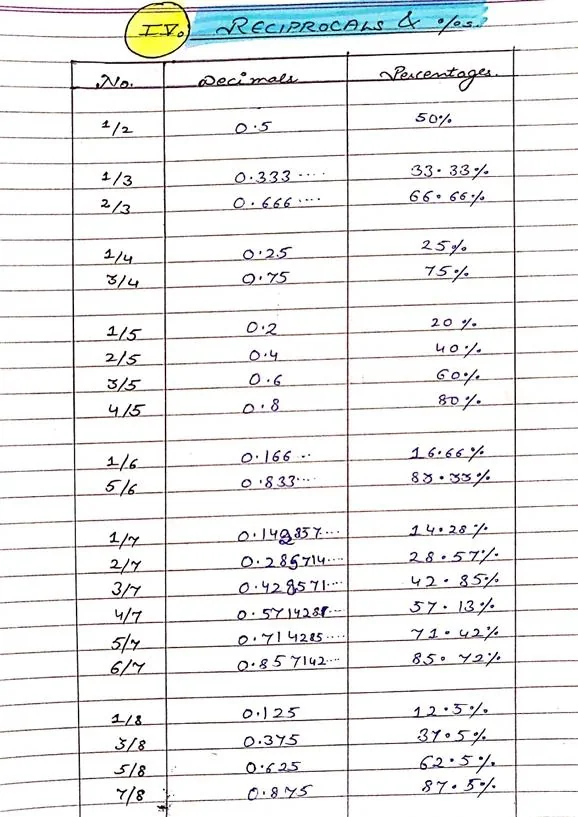 IV. RECIPROCALS & %s.
No. Decimals Percentages.
1/2 0.5 50%
1/3 0.333.... 33.33%
2/3 0.666.... 66.66%
1/4 0.25 25%
3/4 0.75 75%
1/5 0.2 20%
2/5 0.4 40%
3/5 0.6 60%
4/5 0.8 80%
1/6 0.166.. 16.66%
5/6 0.833... 83.33%
1/7 0.142857... 14.28%
2/7 0.285714... 28.57%
3/7 0.428571... 42.85%
4/7 37.13%
5/7 0.714285.... 71.42%
6/7 0.857142... 85.72%
1/8 0.125 12.5%
3/8 0.375 37.5%
5/8 0.625 62.5%
7/8 0.875 87.5%